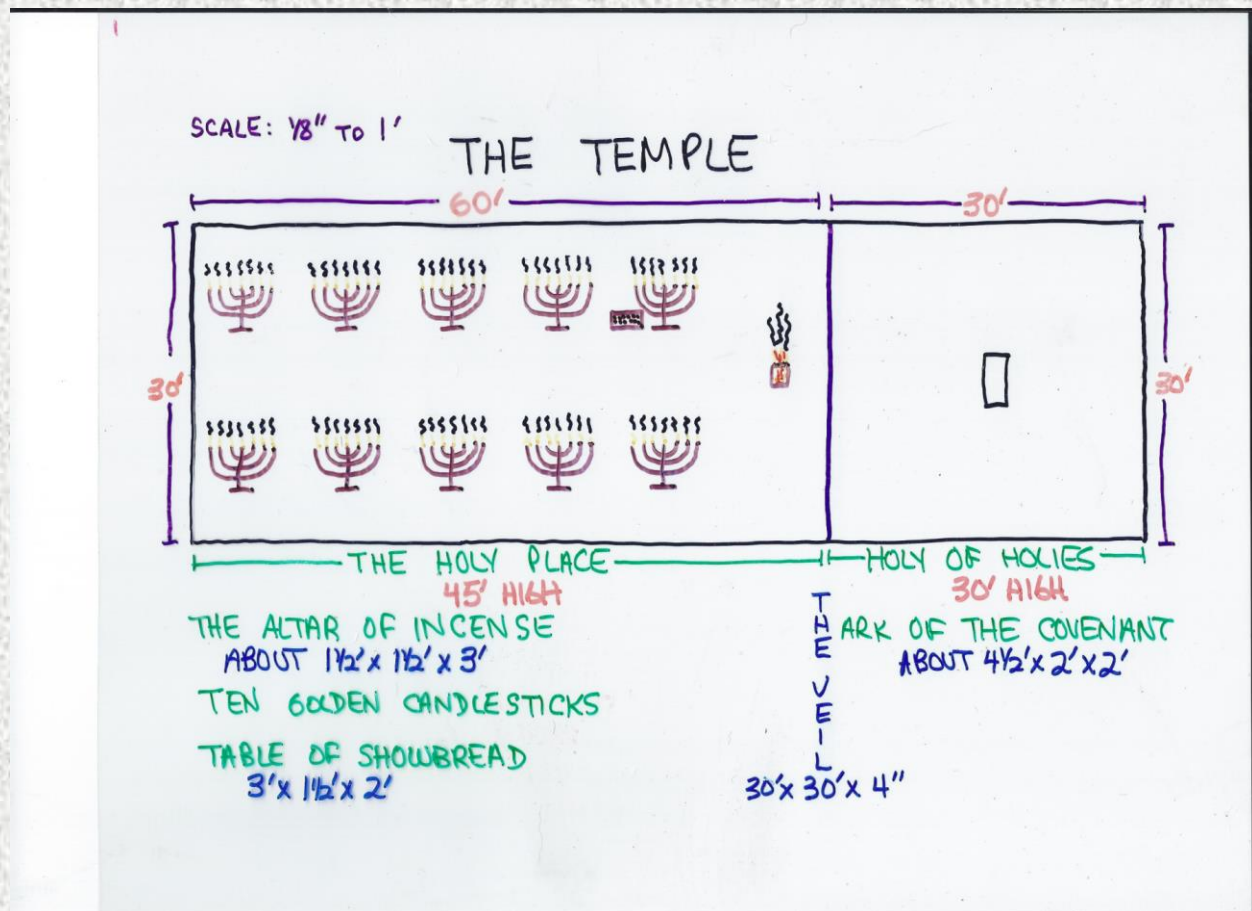 SCALE: 1/8" TO 1'
THE TEMPLE
60' 30'
30' 30'
THE HOLY PLACE HOLY OF HOLIES
45' HIGH 30' HIGH
THE ALTAR OF INCENSE
ABOUT 1½' x 1½' x 3'
TEN GOLDEN CANDLESTICKS
TABLE OF SHOWBREAD
3' x 1½' x 2'
THE VEIL
30' x 30' x 4"
ARK OF THE COVENANT
ABOUT 4½' x 2' x 2'